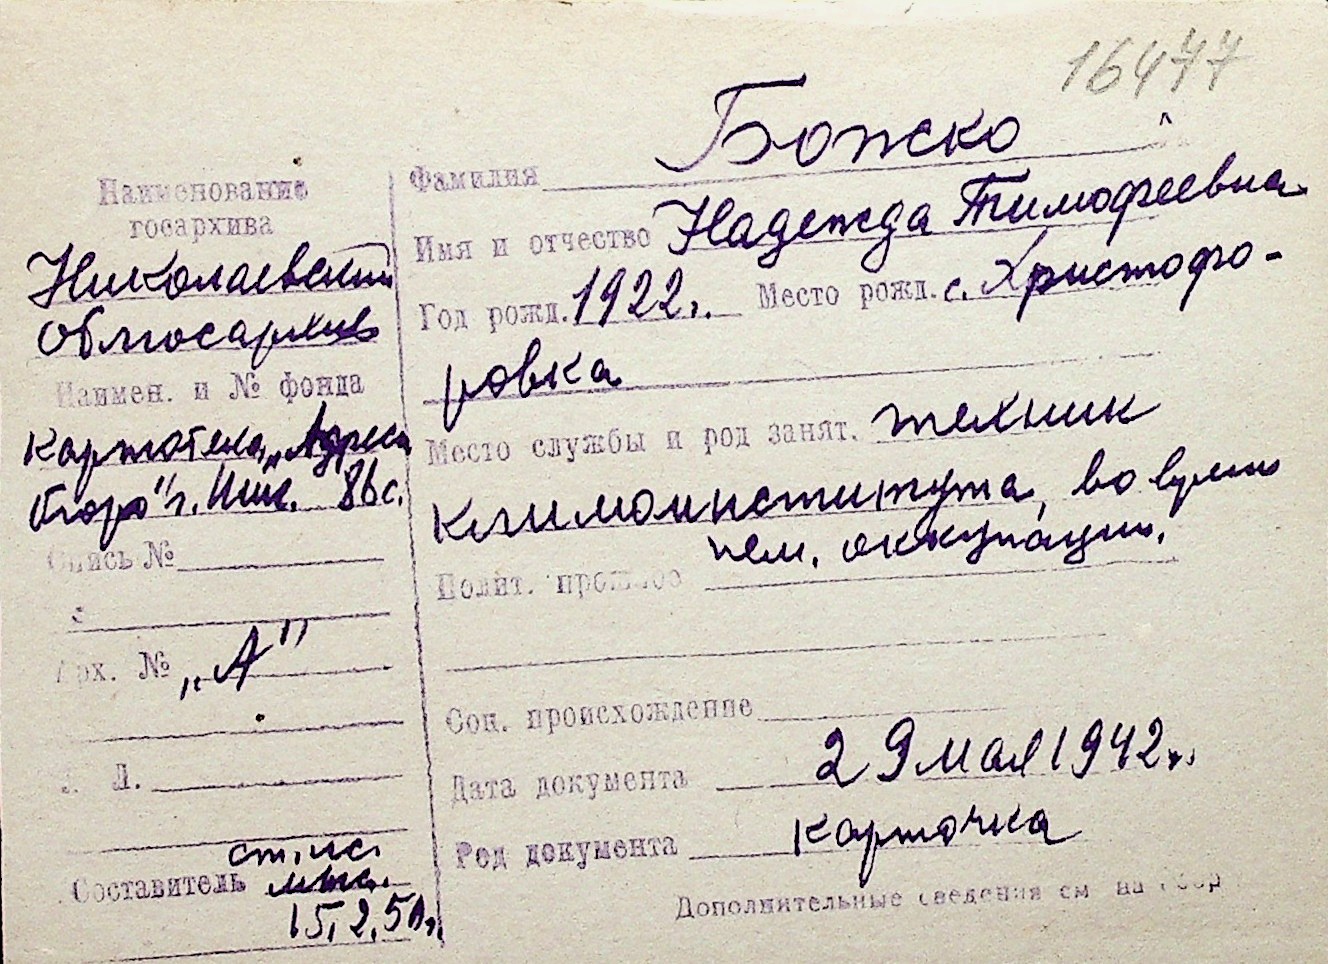 16477
Наименование
госархива
Николаевский
Облгосархив
Наимен. и № фонда
картотека „Адресн
бюро" г. Ник. 86 с.
Опись №
Арх. № „А"
Л.
ст. ис.
Составитель
15.2.50 г.
Фамилия Божко
Имя и отчество Надежда Тимофеевна
Год рожд. 1922 г. Место рожд. с. Христофо-
ровка
Место службы и род занят. техник
климоинститута, во время
нем. оккупации.
Полит. прошлое
Соц. происхождение
Дата документа 29 мая 1942 г.
Род документа карточка
Дополнительные сведения см на обор